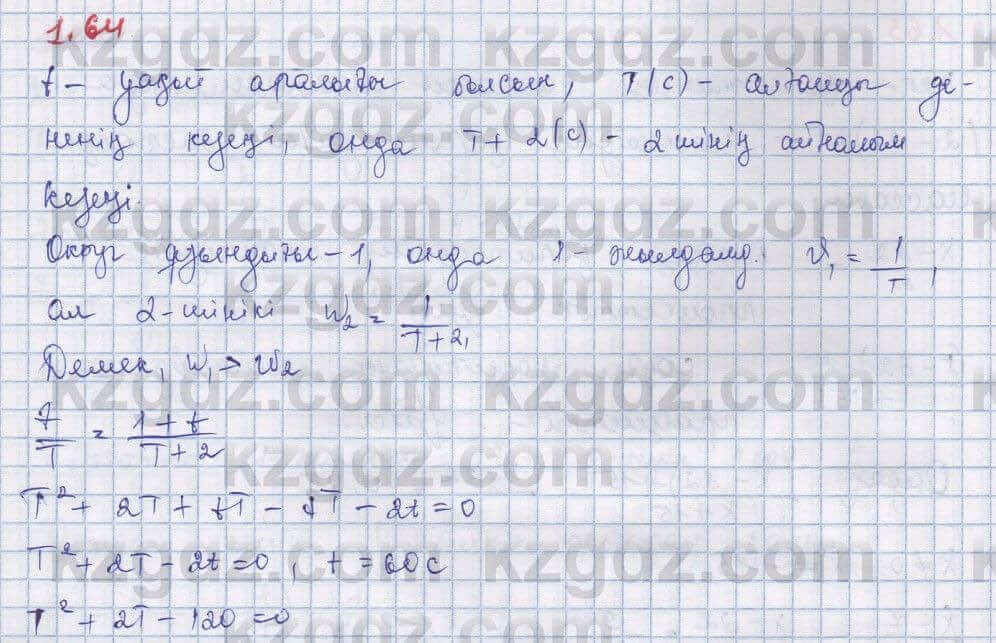 1.64
t – уақыт аралығы болсын, T(с) – алғашқы де-
ненің кезеңі, онда T + 2(с) – 2 шінің айналым
кезеңі.
Округ ұзындығы – 1, онда 1 – жылдамд. V₁ = 1/T,
ал 2-шінікі W₂ = 1/T+2,
Демек, W₁ > W₂
t/T = 1+t/T+2
T² + 2T + tT – tT – 2t = 0
T² + 2T – 2t = 0, t = 60с
T² + 2T – 120 = 0
kzgdz.com